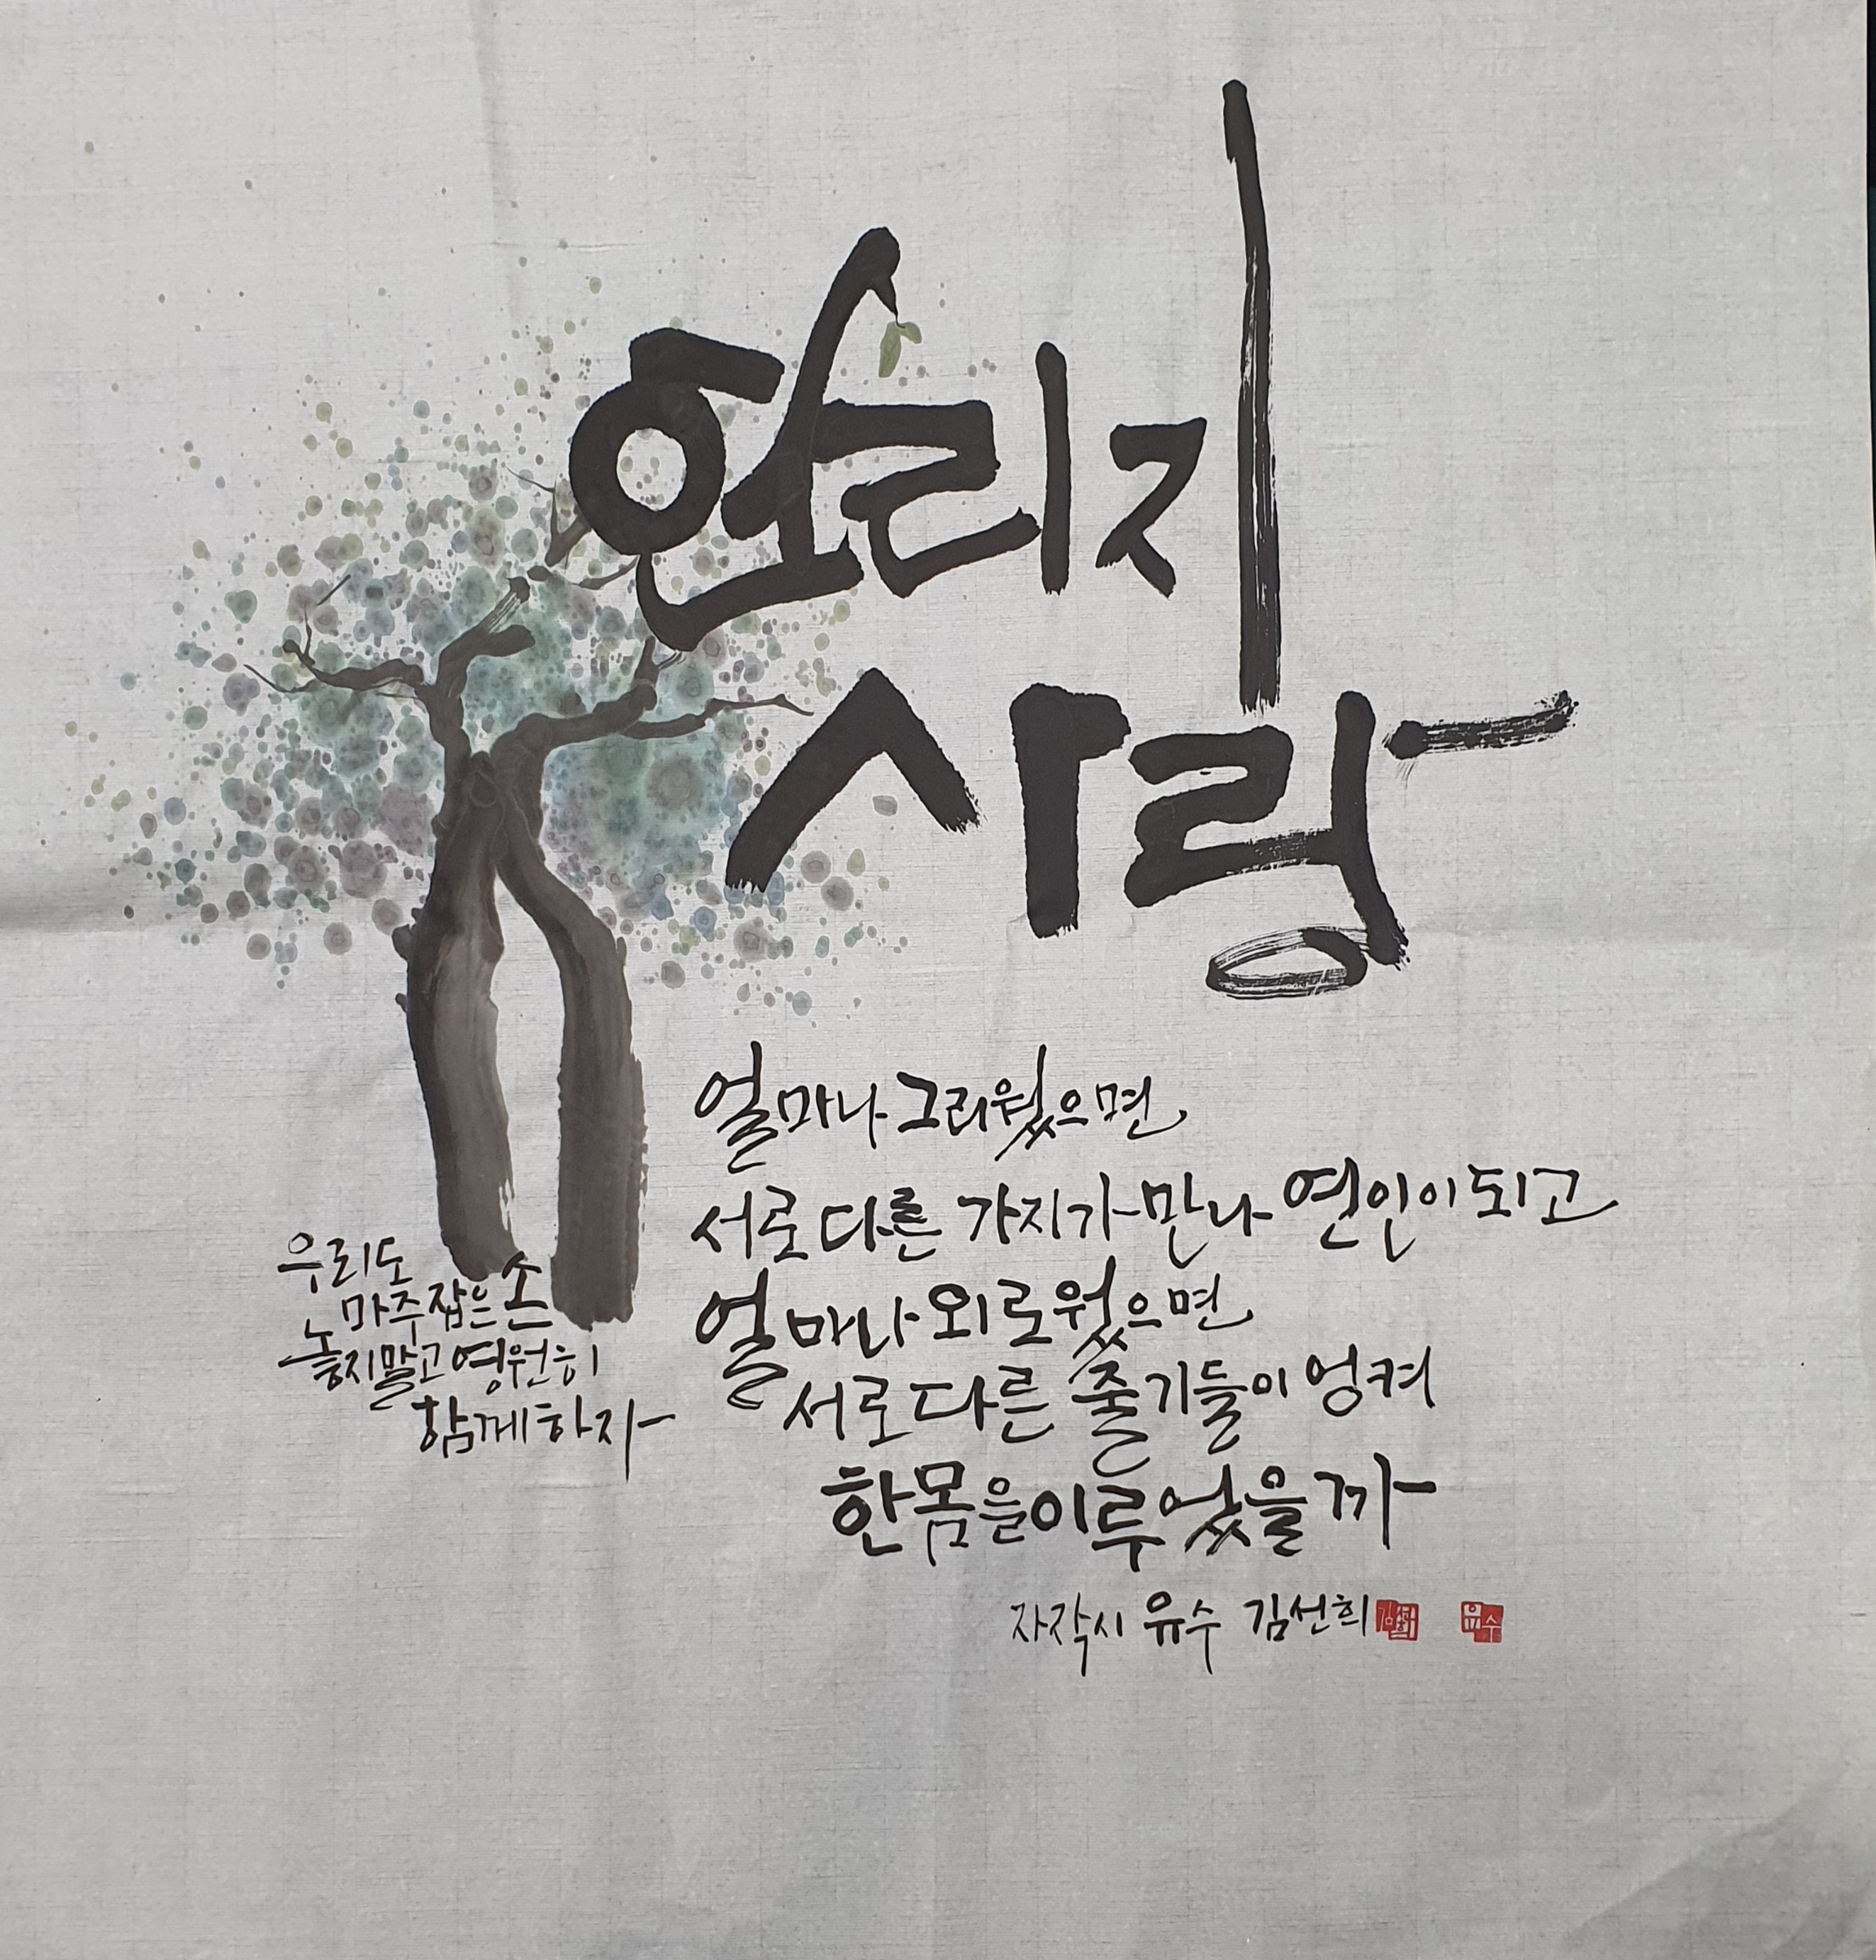 연리지
사랑
얼마나 그리웠으면
서로 다른 가지가 만나 연인이 되고
얼마나 외로웠으면
서로 다른 줄기들이 엉켜
한몸을 이루었을까
우리도
마주잡은 손
놓지말고 영원히
함께하자
자작시 유수 김선희 김선희 유수